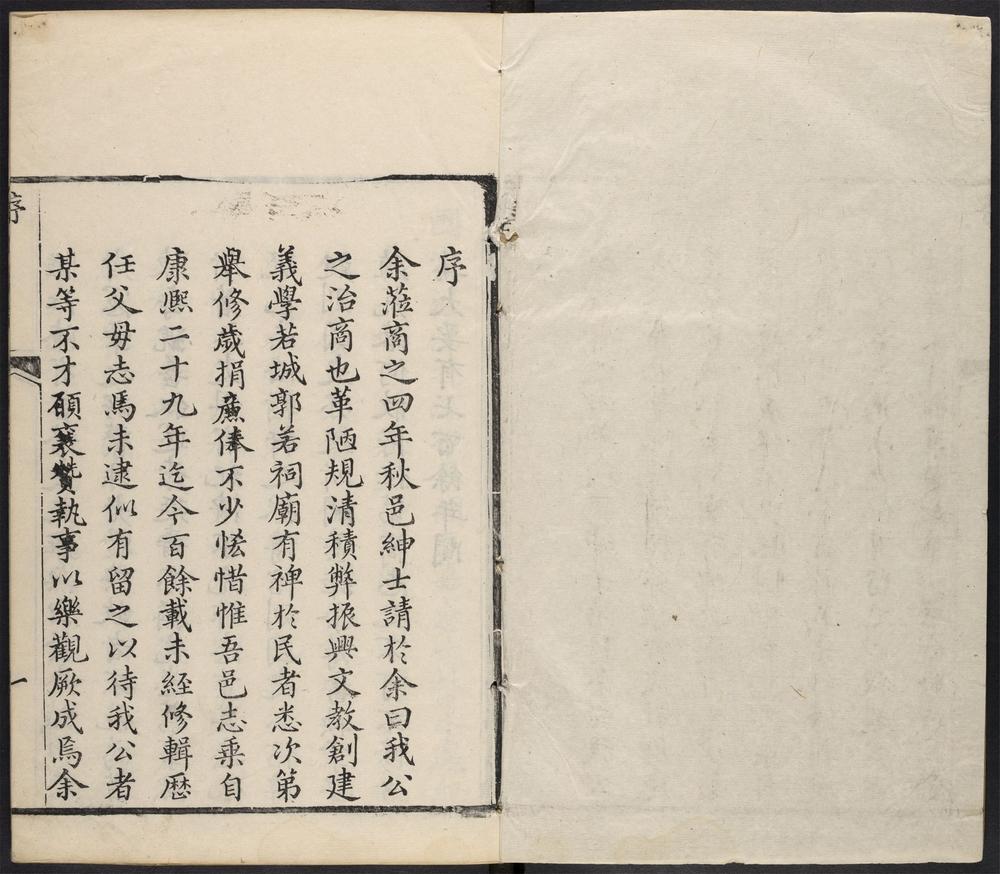 序
余蒞商之四年秋邑紳士請於余曰我公
之治商也革陋規清積弊振興文教創建
義學若城郭若祠廟有裨於民者悉次第
舉修歲捐廉俸不少恡惜惟吾邑志乗自
康熙二十九年迄今百餘載未經修輯歴
任父母志焉未逮似有留之以待我公者
某等不才願襄贊執事以樂觀厥成焉余
序
一